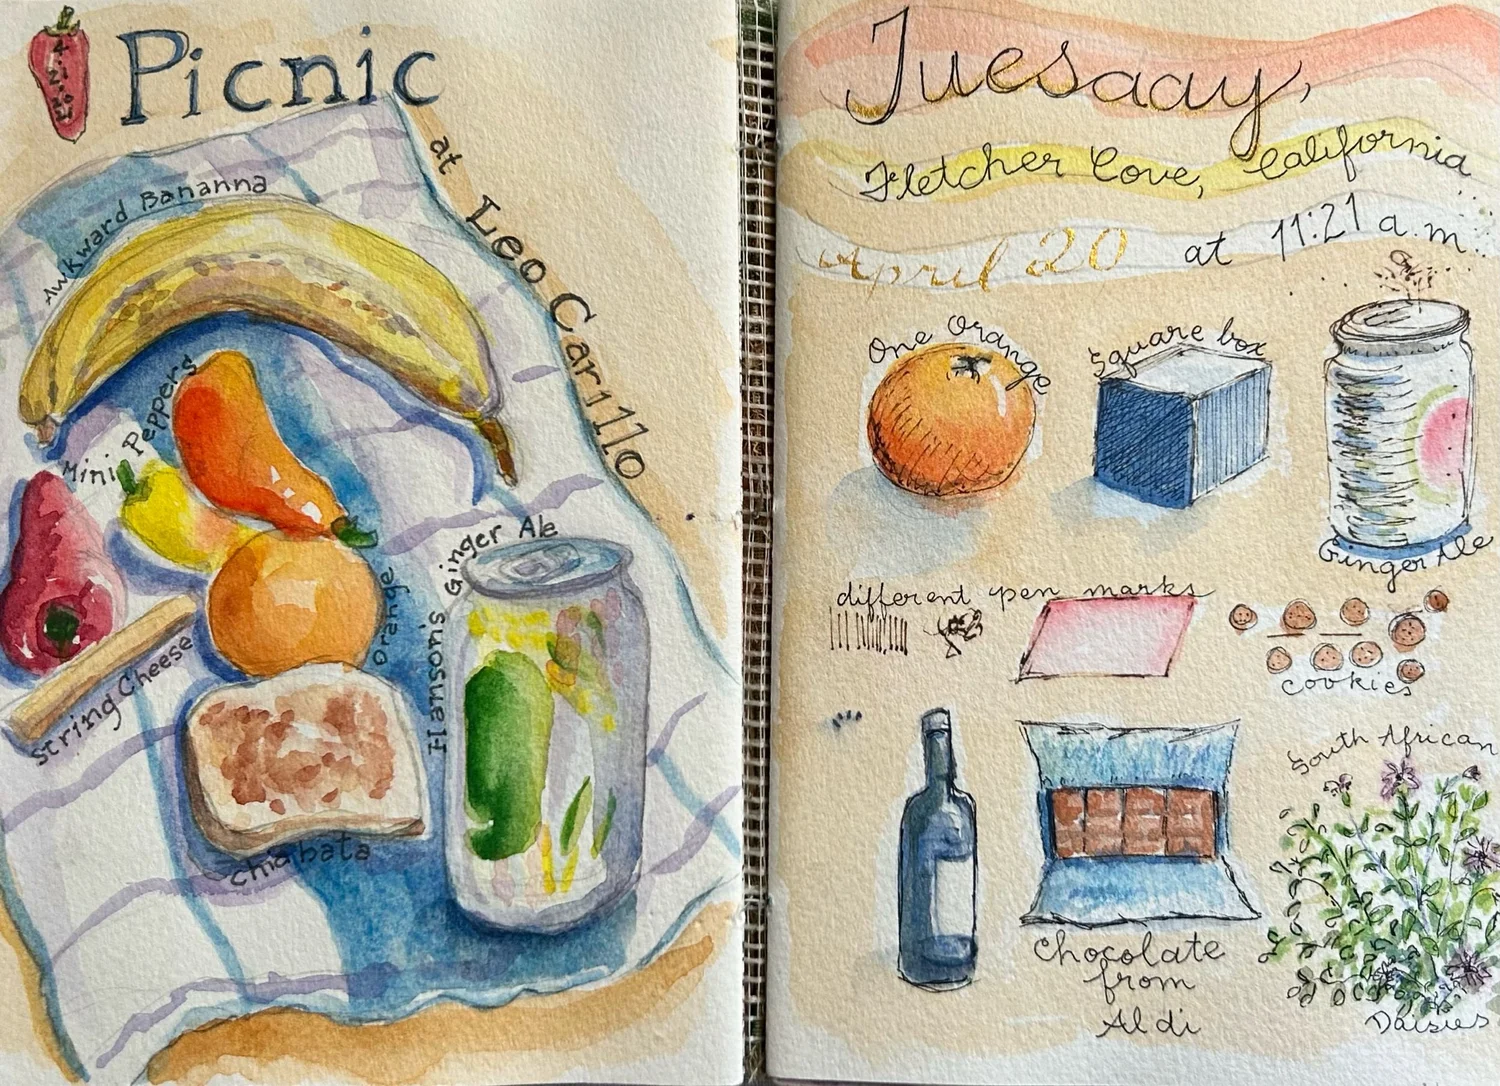 4.21.2021
Picnic
at Leo Carillo
Awkward Bananna
Mini Peppers
Orange
Ginger Ale
Hansons
String Cheese
Chiabata
Tuesday,
Fletcher Cove, California
April 20 at 11:21 a.m.
One Orange
Square box
Ginger Ale
different pen marks
cookies
South African
Daisies
Chocolate
from
Aldi